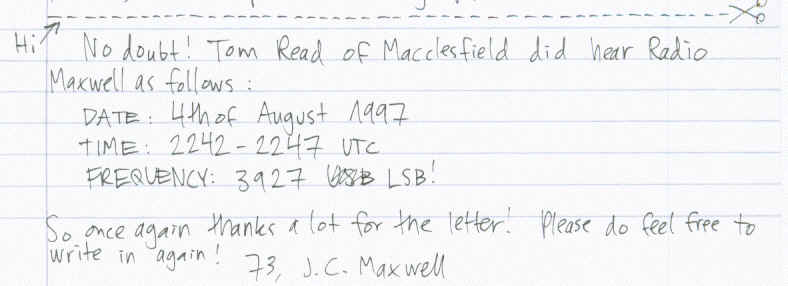 Hi
No doubt! Tom Read of Macclesfield did hear Radio
Maxwell as follows:
DATE: 4th of August 1997
TIME: 2242-2247 UTC
FREQUENCY: 3927 LSB!
So once again thanks a lot for the letter! Please do feel free to
write in again! 73, J.C. Maxwell